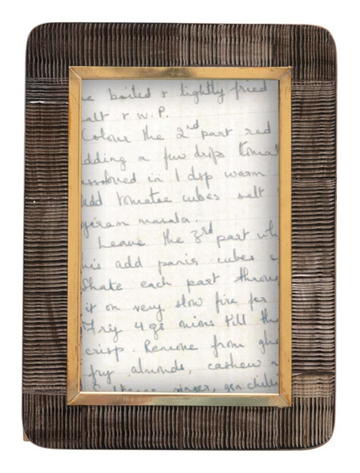 be boiled & lightly fried
salt & w.P.
Colour the 2nd part red
adding a few drops tomat
in 1 dsp warm
add tomatoe cubes salt
garam masala.
Leave the 3rd part wh
this add panir cubes
Shake each part
it on very slow fire for
Fry 4 ozs onions till the
crisp. Remove from ghe
fry almonds, cashew n
ginger, grn chilli